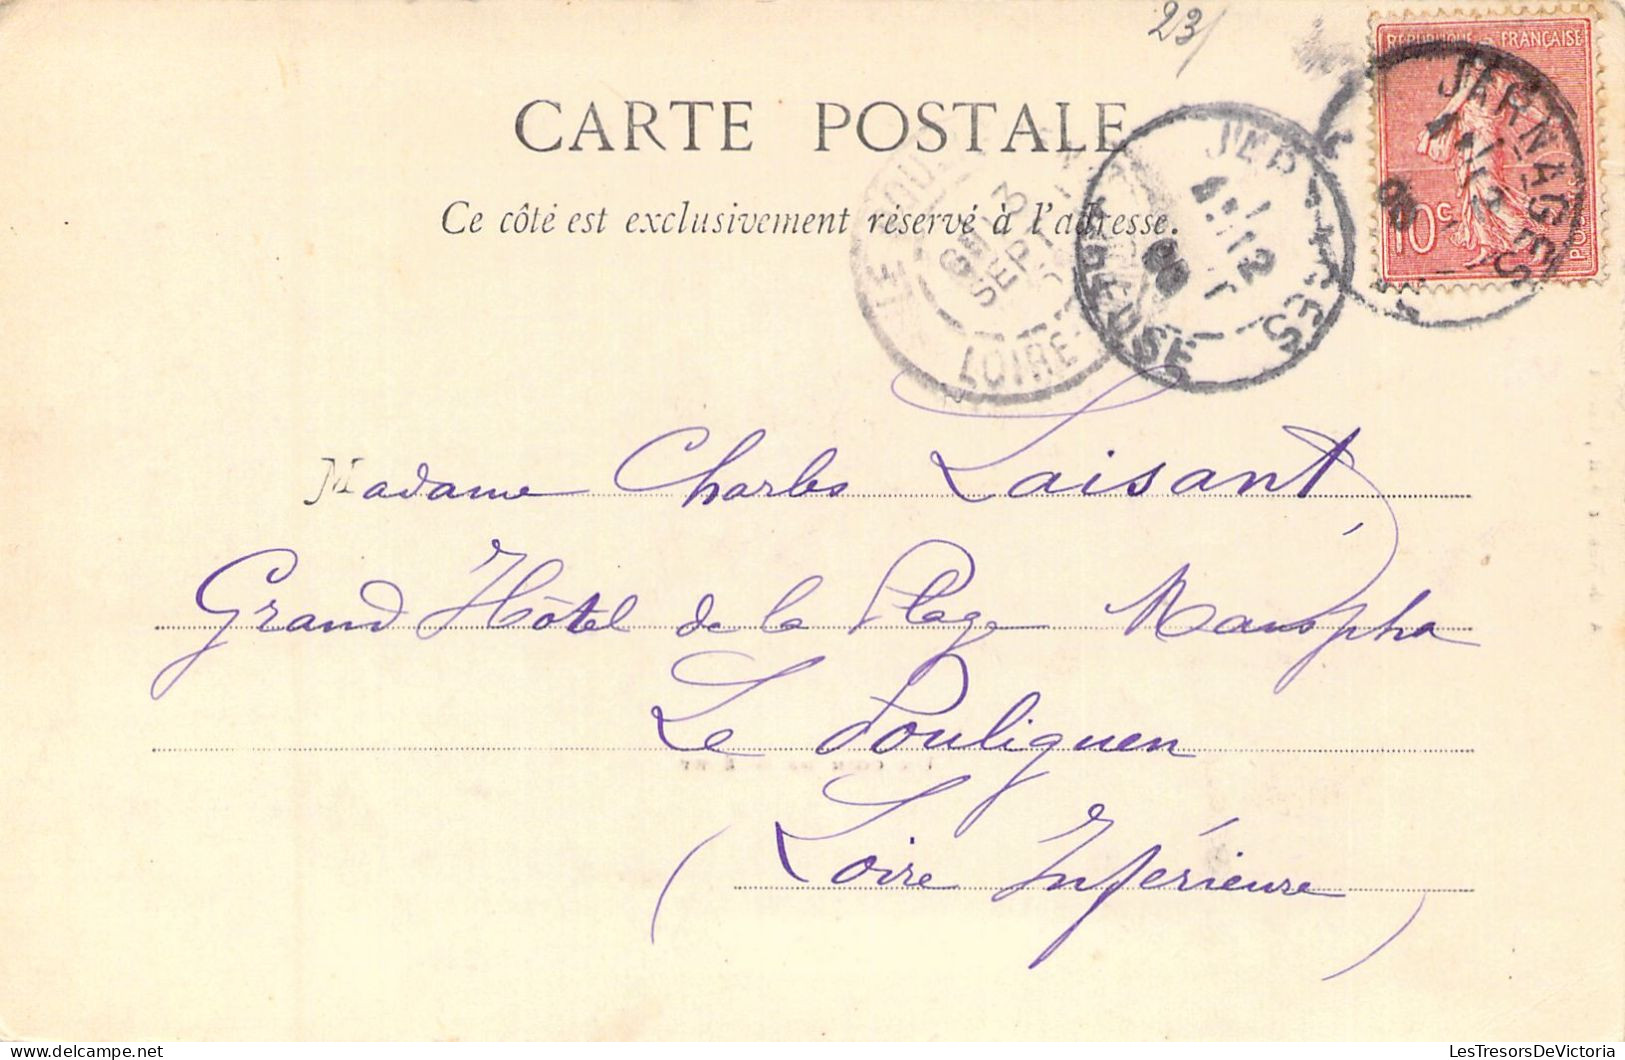 23/
REPUBLIQUE FRANÇAISE
10c
POSTES
CARTE POSTALE
Ce côté est exclusivement réservé à l'adresse.
JARNAGES
12
JARNAGES
12
CREUSE
LE POULIGUEN
13
SEPT
LOIRE
Madame Charles Laisant,
Grand Hôtel de la Plage
Le Pouliguen
(Loire Inférieure)
LesTresorsDeVictoria